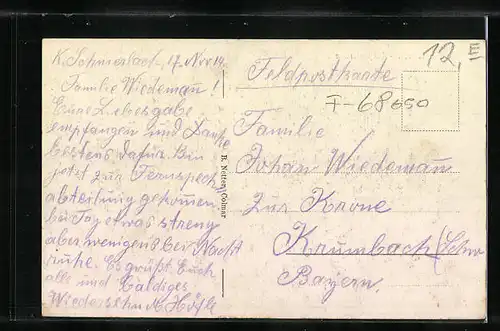 K. Schmerlach, 17. Nov 14
Familie Wiedemañ!
Eure Liebesgabe
empfangen und Danke
bestens dafür. Bin
jetzt zur Fernspech
abteilung gekomen
bei Tag etwas streng
aber wenigens bei Nacht
ruhe. Es grüßt Euch
alle und baldiges
Wiedersehn M. Högle
R. Netter, Colmar
12,E
Feldpostkarte
F-68650
Familie
Johan Wiedemañ
zur Krone
Krumbach (Schw
Bayern